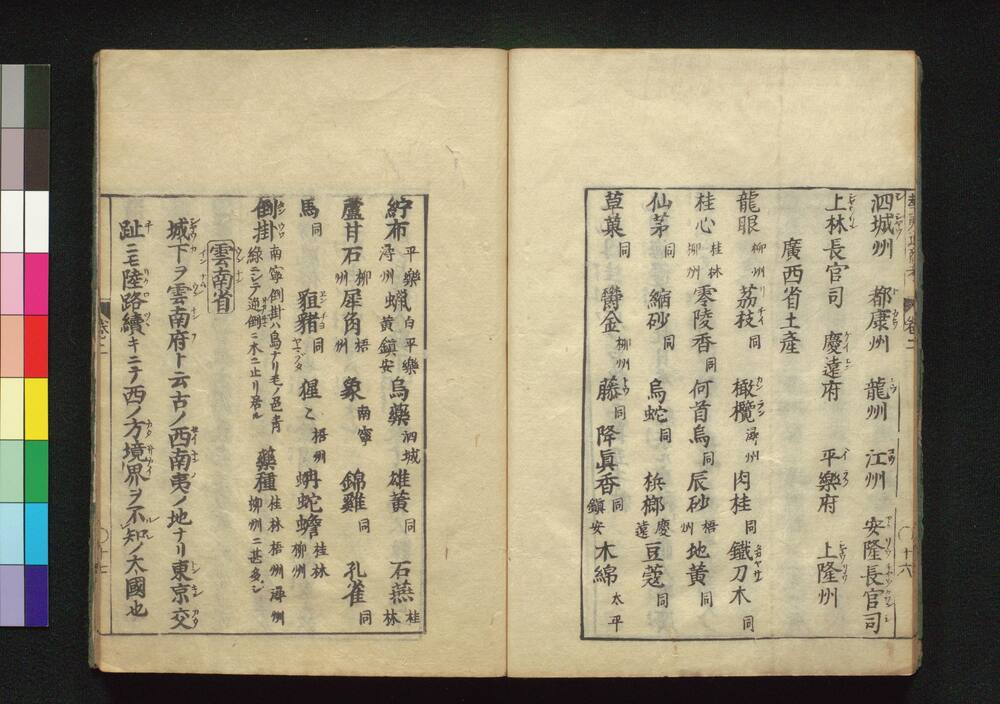 泗城州 都康州 龍州 江州 安隆長官司
上林長官司 慶遠府 平樂府 上隆州
廣西省土產
龍眼 柳州 荔枝 同 橄欖 潯州 肉桂 同 鐵刀木 同
桂心 桂林 柳州 零陵香 同 何首烏 同 辰砂 梧州 地黃 同
仙茅 同 縮砂 同 烏蛇 同 梹榔 慶遠 豆蔻 同
草菓 同 欝金 柳州 藤 同 降眞香 同 鎮安 木綿 太平
紵布 平樂 潯州 蠟 白平樂 黄鎮安 烏藥 泗城 雄黄 同 石燕 桂林
蘆甘石 柳州 犀角 梧州 象 南寧 錦雞 同 孔雀 同
馬 同 豭豬 同 ヤマブタ 猩〻 梧州 蚺蛇蟾 桂林 柳州
倒掛 南寧倒掛ハ鳥ナリ毛ノ色青緑ニシテ逆倒ニ木ニ止リ居ル 藥種 桂林 梧州 潯州 柳州ニ甚多シ
雲南省
城下ヲ雲南府ト云古ノ西南夷ノ地ナリ東京交
趾ニモ陸路續キニテ西ノ方境界ヲ不知ノ大國也
卷之二
十六
十七